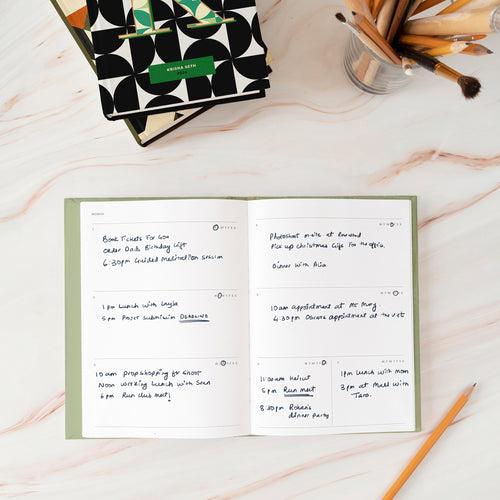 KRISHA SETH
MONTH
Book Tickets For Goa
Order Dads Birthday Gift
6:30pm Guided Meditation session
1 pm Lunch with Layla
5 pm Project Submission DEADLINE
10 am prop shopping for shoot
Noon working lunch with Sean
6 pm Run club meet!
Photoshoot on-site at
Pick up Christmas Gifts for the office.
Dinner with Alia
10 am appointment at Mt Mary.
4:30 pm Oscars appointment at the vet
11:00am Haircut
5 pm Run meet
8:30pm Rohan's
dinner party
1pm Lunch with mom
3 pm at Mall with
Tara.